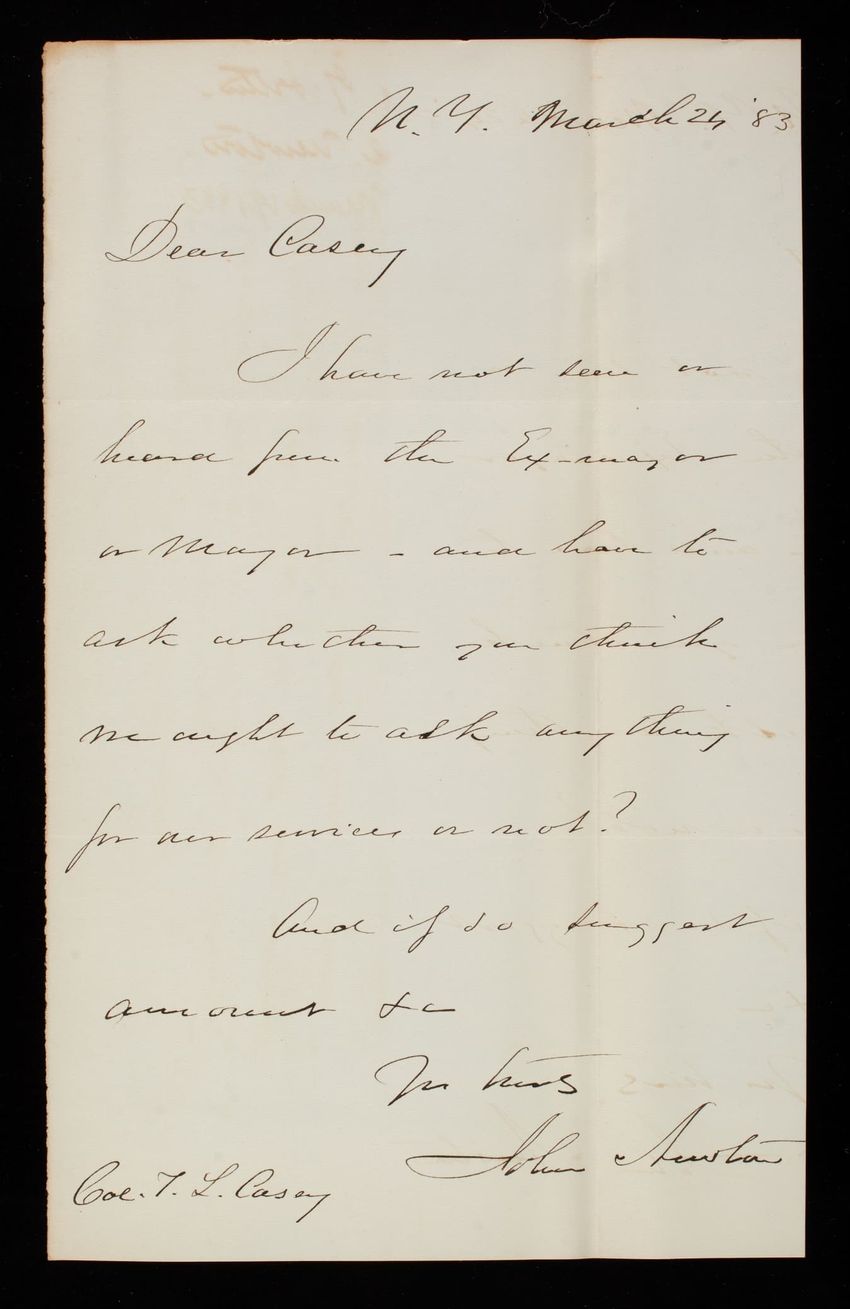 N. Y. March 24 '83
Dear Casey
I have not seen or
heard from the Ex-mayor
or Mayor - and have to
ask whether you think
we ought to ask anything
for our services or not?
And if so suggest
amount &c
Yrs truly
John Newton
Col. T. L. Casey